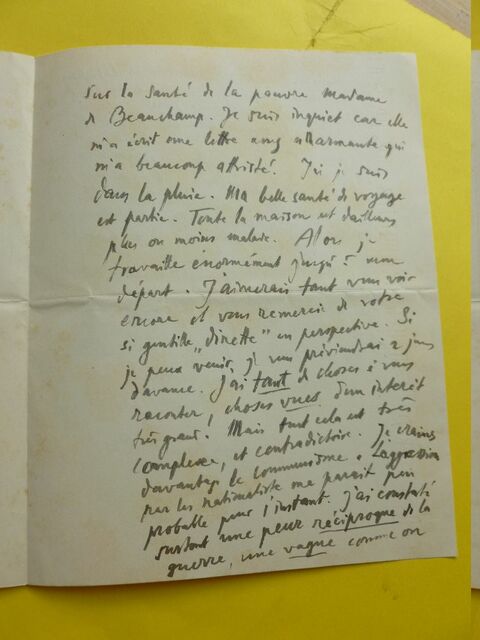 sur la santé de la pauvre Madame
de Beauchamp. Je suis inquiet car elle
m'a écrit une lettre assez alarmante qui
m'a beaucoup attristé. Ici je suis
dans la pluie. Ma belle santé de voyage
est partie. Toute la maison est d'ailleurs
plus ou moins malade. Alors je
travaille énormément jusqu'à mon
départ. J'aimerais tant vous voir
encore et vous remercier de votre
si gentille "dinette" en perspective. Si
je peux venir, je vous préviendrai 2 jours
d'avance. J'ai tant de choses à vous
raconter, choses vues d'un intérêt
très grand. Mais tout cela est très
complexe, et contradictoire. Je crains
davantage le communisme. L'aggression
par les nationaliste me parait peu
probable pour l'instant. J'ai constaté
surtout une peur réciproque de la
guerre, une vague comme on